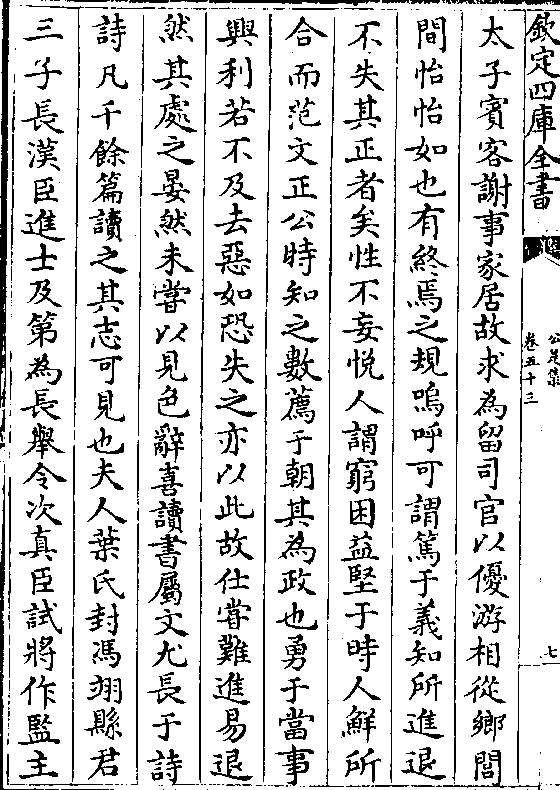 欽定四庫全書
公是集
卷五十三
七
太子賓客謝事家居故求為留司官以優游相從鄉閭
間怡怡如也有終焉之規嗚呼可謂篤于義知所進退
不失其正者矣性不妄悅人謂窮困益堅于時人鮮所
合而范文正公時知之數薦于朝其為政也勇于當事
興利若不及去惡如恐失之亦以此故仕嘗難進易退
然其處之晏然未嘗以見色辭喜讀書屬文尤長于詩
詩凡千餘篇讀之其志可見也夫人葉氏封馮翊縣君
三子長漢臣進士及第為長舉令次真臣試將作監主